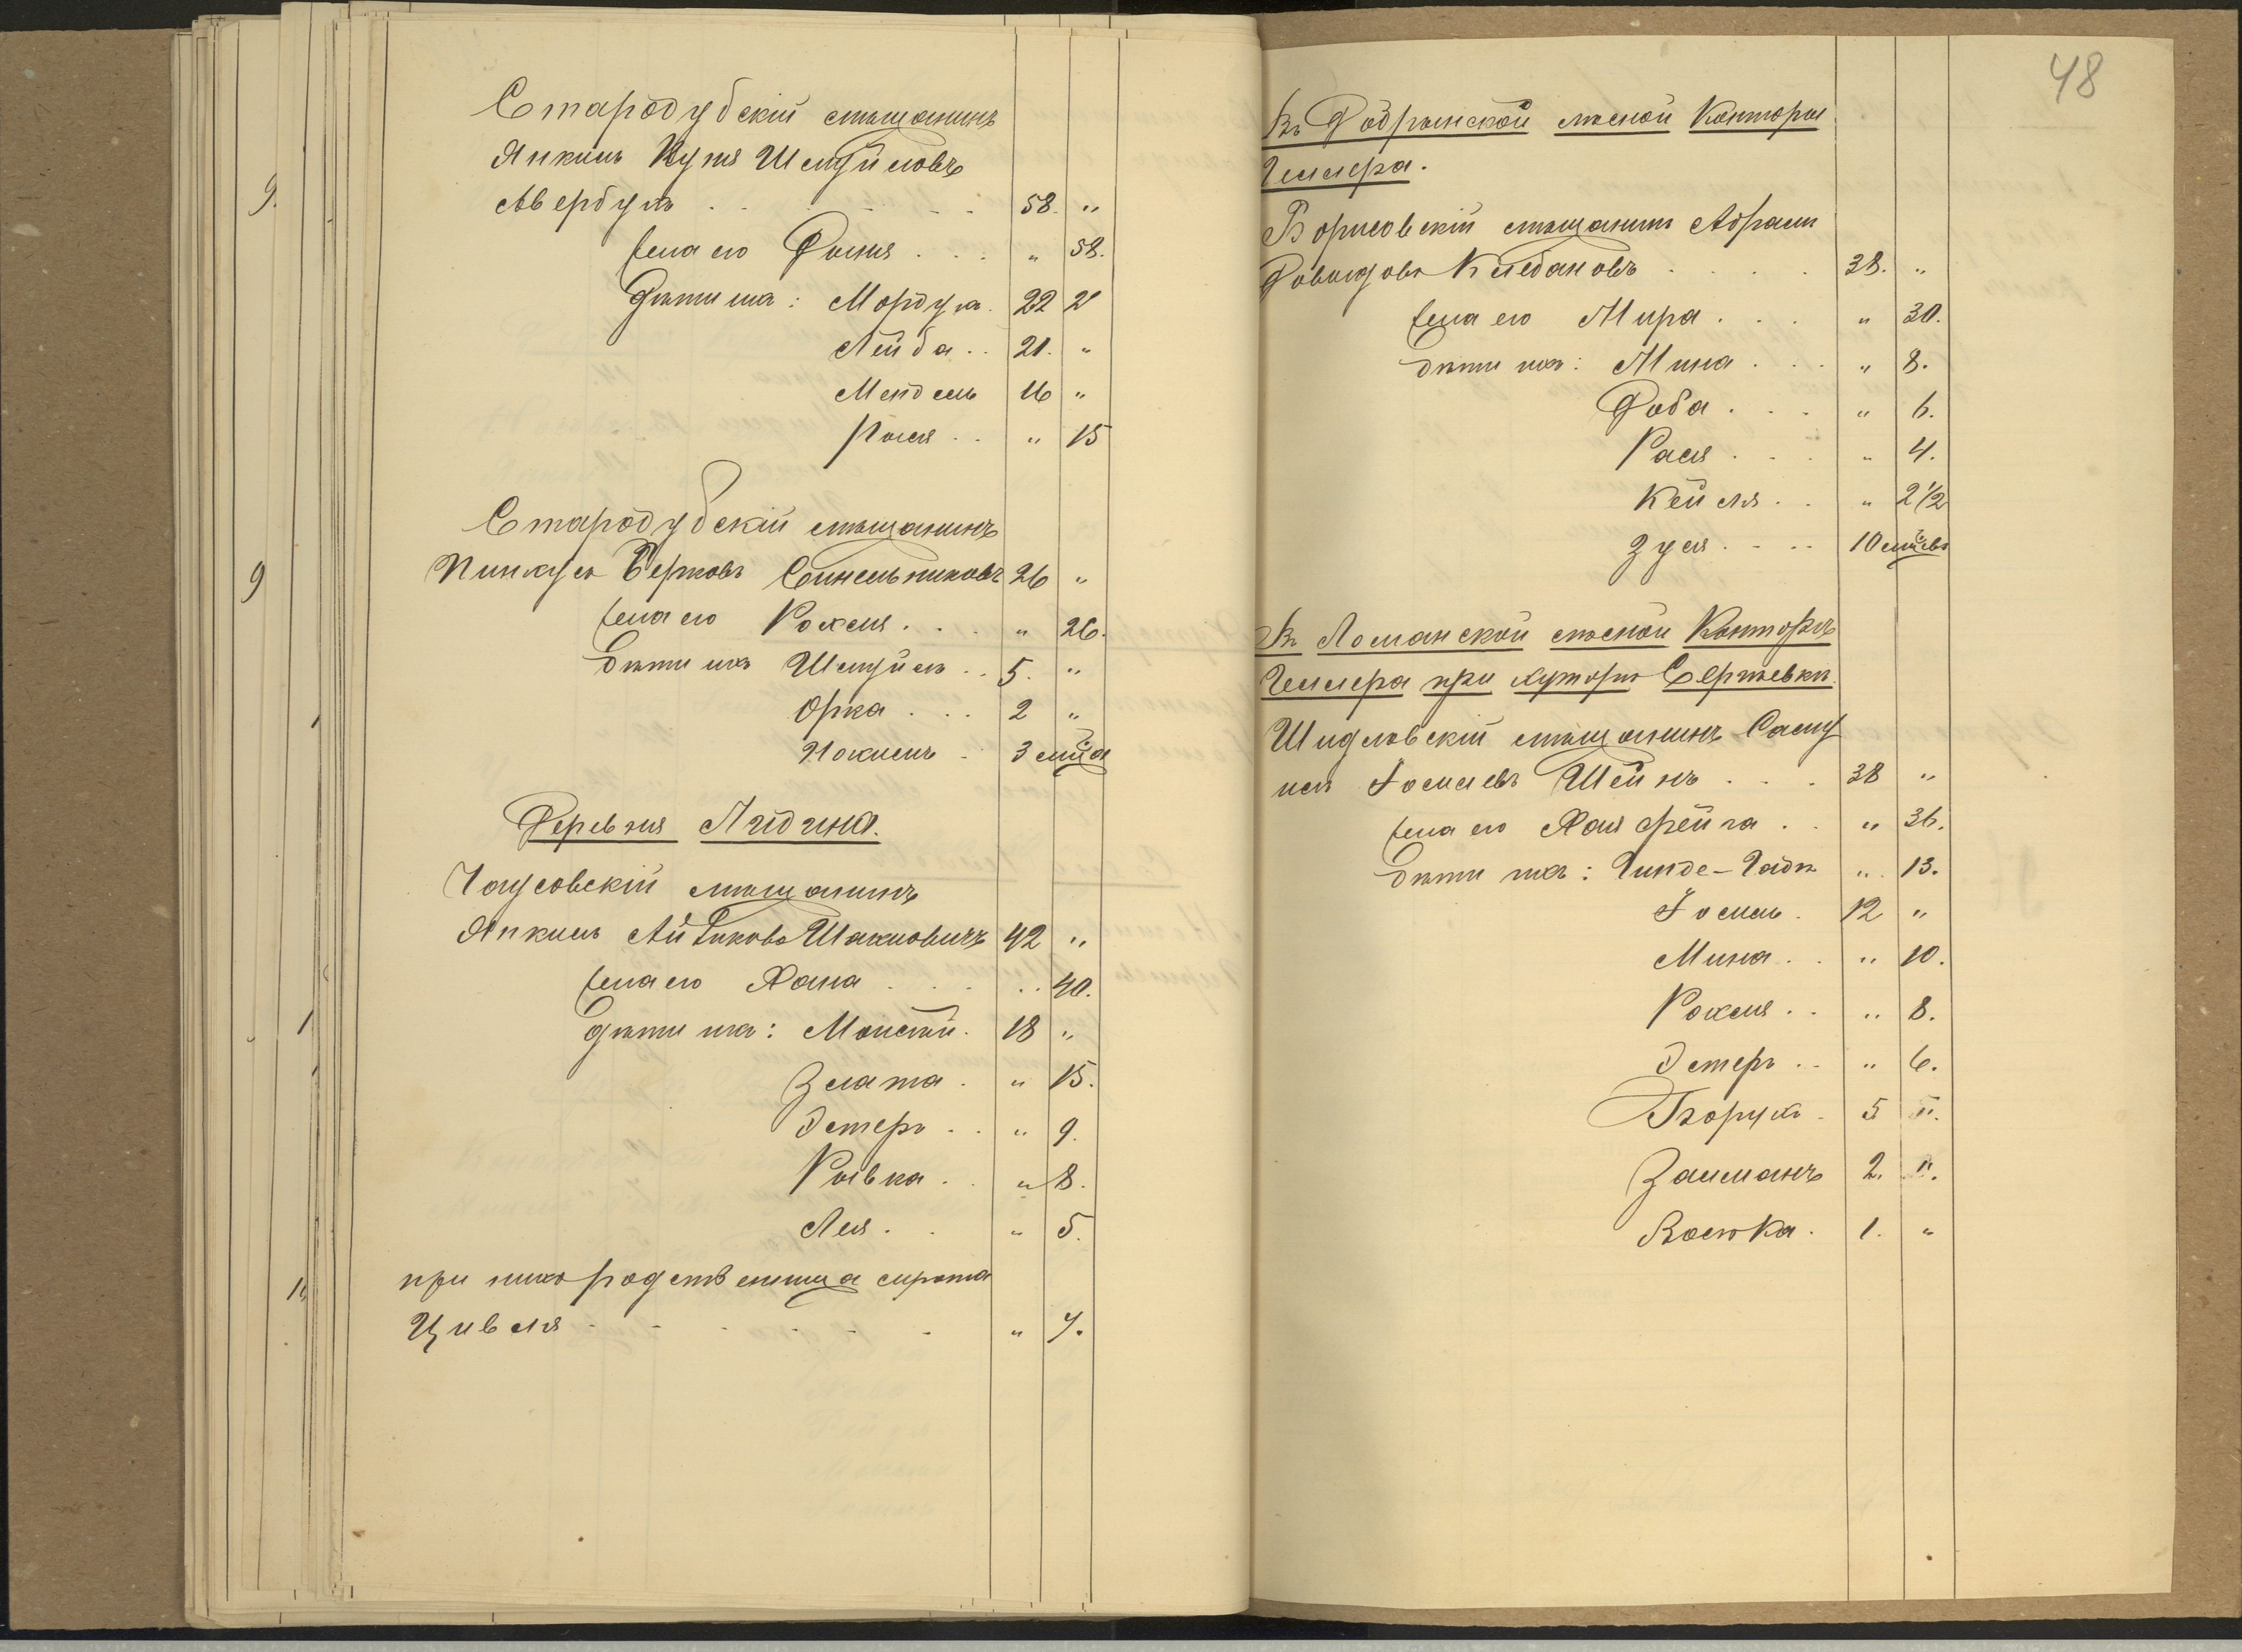 Стародубскій мѣщанинъ
Янкель Нутя Шмуйловъ
Авербухъ . . . . . 58. "
жена его Фыня . . . " 58.
Дѣти ихъ: Мордухъ. 22 21
Лейба .. 21. "
Мендель 16 "
Рыся .. " 15
Стародубскій мѣщанинъ
Пинхусъ Берковъ Синельниковъ 26 "
жена его Рохля . . . " 26.
Дѣти ихъ Шмуйлъ .. 5. "
Орка . . . 2 "
Иохиль . 3 мѣс̃ца
Деревня Лидина.
Чаусовскій мѣщанинъ
Янкель Айзиковъ Шахновичъ 42 "
жена его Хана . . . " 40.
дѣти ихъ: Моисей. 18 "
Злата . " 15.
Эстеръ .. " 9.
Рывка . . " 8.
Лея . . " 5.
при нихъ родственница сирота
Цивля - - - - - " 7.
48
Въ Добрынской лѣсной Конторѣ
Гессера.
Борисовскій мѣщанинъ Абрамъ
Довыдовъ Клебановъ . . . . 38. "
жена его Мира . . . " 30.
Дѣти ихъ: Мина . . . " 8.
Доба . . . " 6.
Рася . . . " 4.
Кейля . . " 2 1/2
Зуся . . . . 10 мѣс̃цевъ
Въ Ломанской лѣсной Конторѣ
Гессера при хуторѣ Сергѣевкѣ.
Шидловскій мѣщанинъ Саму
илъ Іоселевъ Шейнъ . . . 38 "
жена его Хая Фейга . . " 36.
Дѣти ихъ: Гинде-Гадѣ " 13.
Іосель . 12 "
Мина . . " 10.
Рохля . . " 8.
Эстеръ .. " 6.
Борухъ . 5 ".
Залманъ 2. ".
1. "